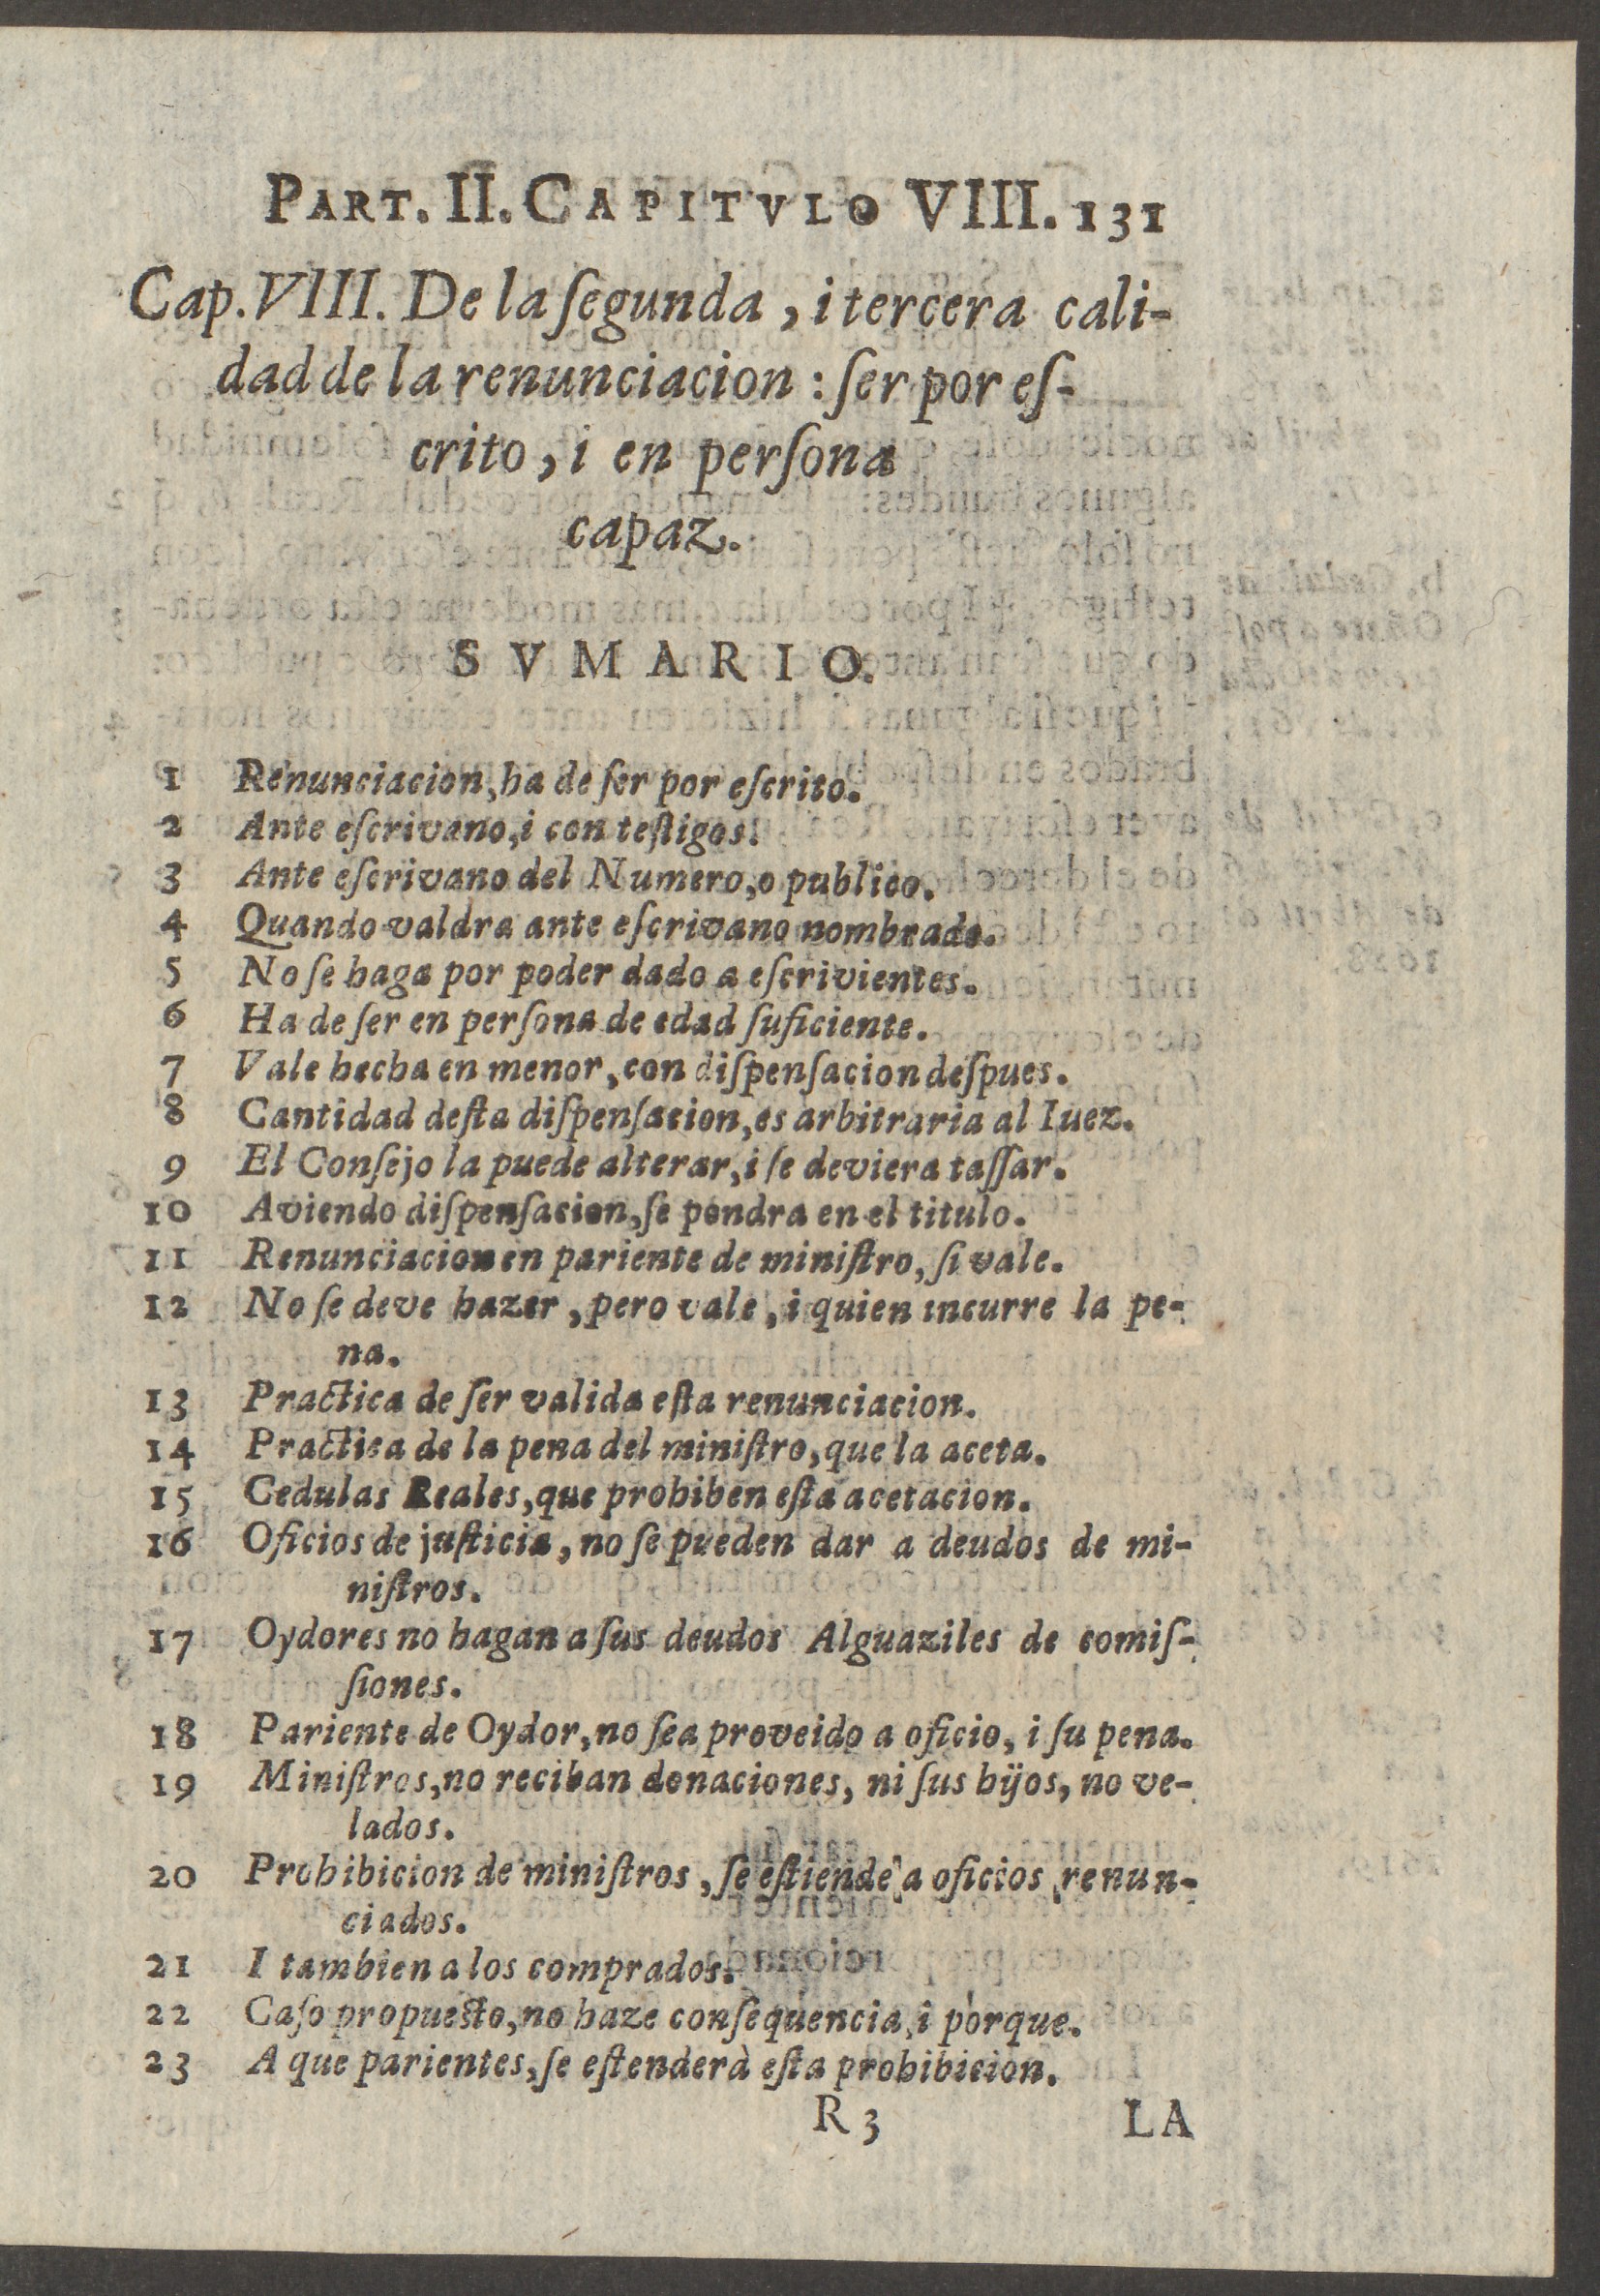 PART. II. CAPITVLO VIII. 131
Cap. VIII. De la ſegunda, i tercera cali-
dad de la renunciacion: ſer por eſ-
crito, i en perſona
capaz.
SVMARIO.
1 Renunciacion, ha de ſer por eſcrito.
2 Ante eſcrivano, i con teſtigos.
3 Ante eſcrivano del Numero, o publico.
4 Quando valdra ante eſcrivano nombrado.
5 No ſe haga por poder dado a eſcrivientes.
6 Ha de ſer en perſona de edad ſuficiente.
7 Vale hecha en menor, con diſpenſacion deſpues.
8 Cantidad deſta diſpenſacion, es arbitraria al Iuez.
9 El Conſejo la puede alterar, i ſe deviera taſſar.
10 Aviendo diſpenſacion, ſe pondra en el titulo.
11 Renunciacion en pariente de miniſtro, ſi vale.
12 No ſe deve hazer, pero vale, i quien incurre la pe-
na.
13 Practica de ſer valida eſta renunciacion.
14 Practica de la pena del miniſtro, que la aceta.
15 Cedulas Reales, que prohiben eſta acetacion.
16 Oficios de juſticia, no ſe pueden dar a deudos de mi-
niſtros.
17 Oydores no hagan a ſus deudos Alguaziles de comiſ-
ſiones.
18 Pariente de Oydor, no ſea proveido a oficio, i ſu pena.
19 Miniſtros, no reciban donaciones, ni ſus hijos, no ve-
lados.
20 Prohibicion de miniſtros, ſe eſtiende a oficios renun-
ciados.
21 I tambien a los comprados.
22 Caſo propueſto, no haze conſequencia, i porque.
23 A que parientes, ſe eſtenderà eſta prohibicion.
R 3 LA